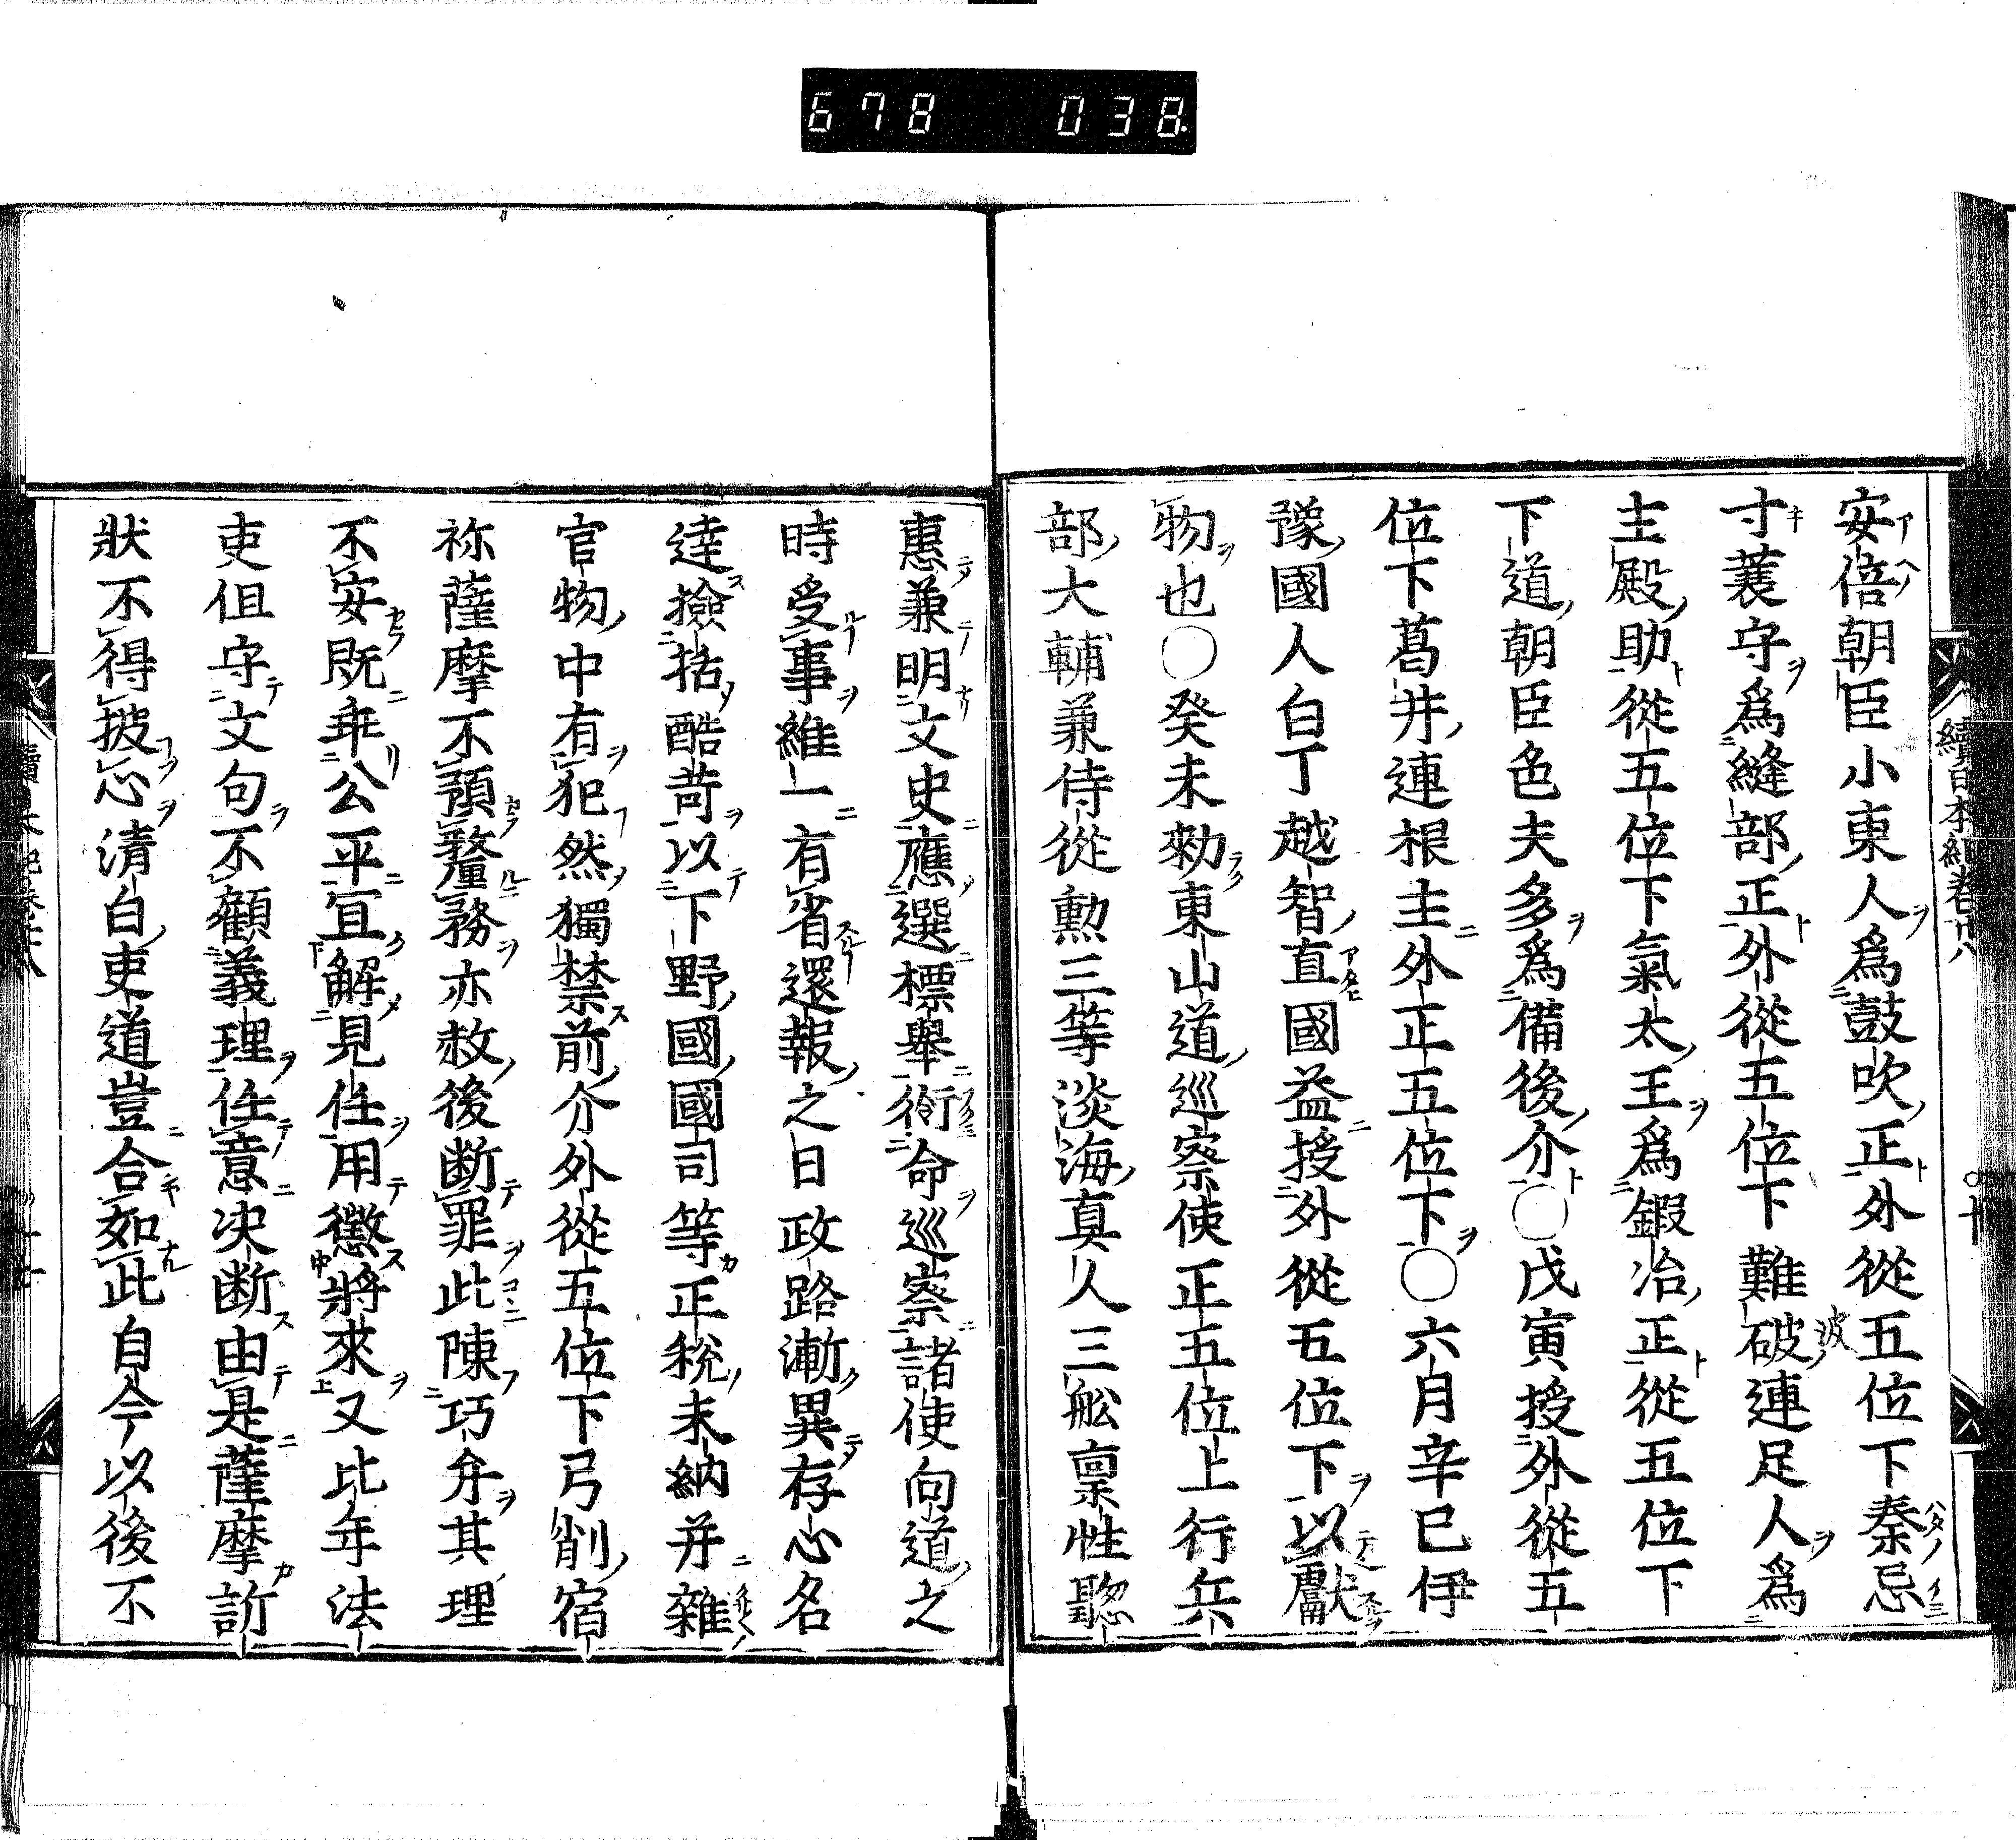 678 038
安倍朝臣小東人爲鼓吹正外從五位下秦忌
寸蓑守爲縫部正外從五位下難破連足人爲
主殿助從五位下氣太王爲鍛冶正從五位下
下道朝臣色夫多爲備後介○戊寅授外從五
位下葛井連根主外正五位下○六月辛巳伊
豫國人白丁越智直國益授外從五位下以獻
物也○癸未勑東山道巡察使正五位上行兵
部大輔兼侍從勲三等淡海真人三舩禀性聦
惠兼明文史應選標舉銜命巡察諸使向道之
時受事維一有省還報之日政路漸異存心名
達撿括酷苛以下野國國司等正税未納并雜
官物中有犯然獨禁前介外從五位下弓削宿
祢薩摩不預釐務亦赦後断罪此陳巧弁其理
不安既乖公平冝解見任用懲將來又比年法
吏但守文句不顧義理任意决断由是薩摩訢
狀不得披心清白吏道豈合如此自今以後不
續日本紀卷廿八